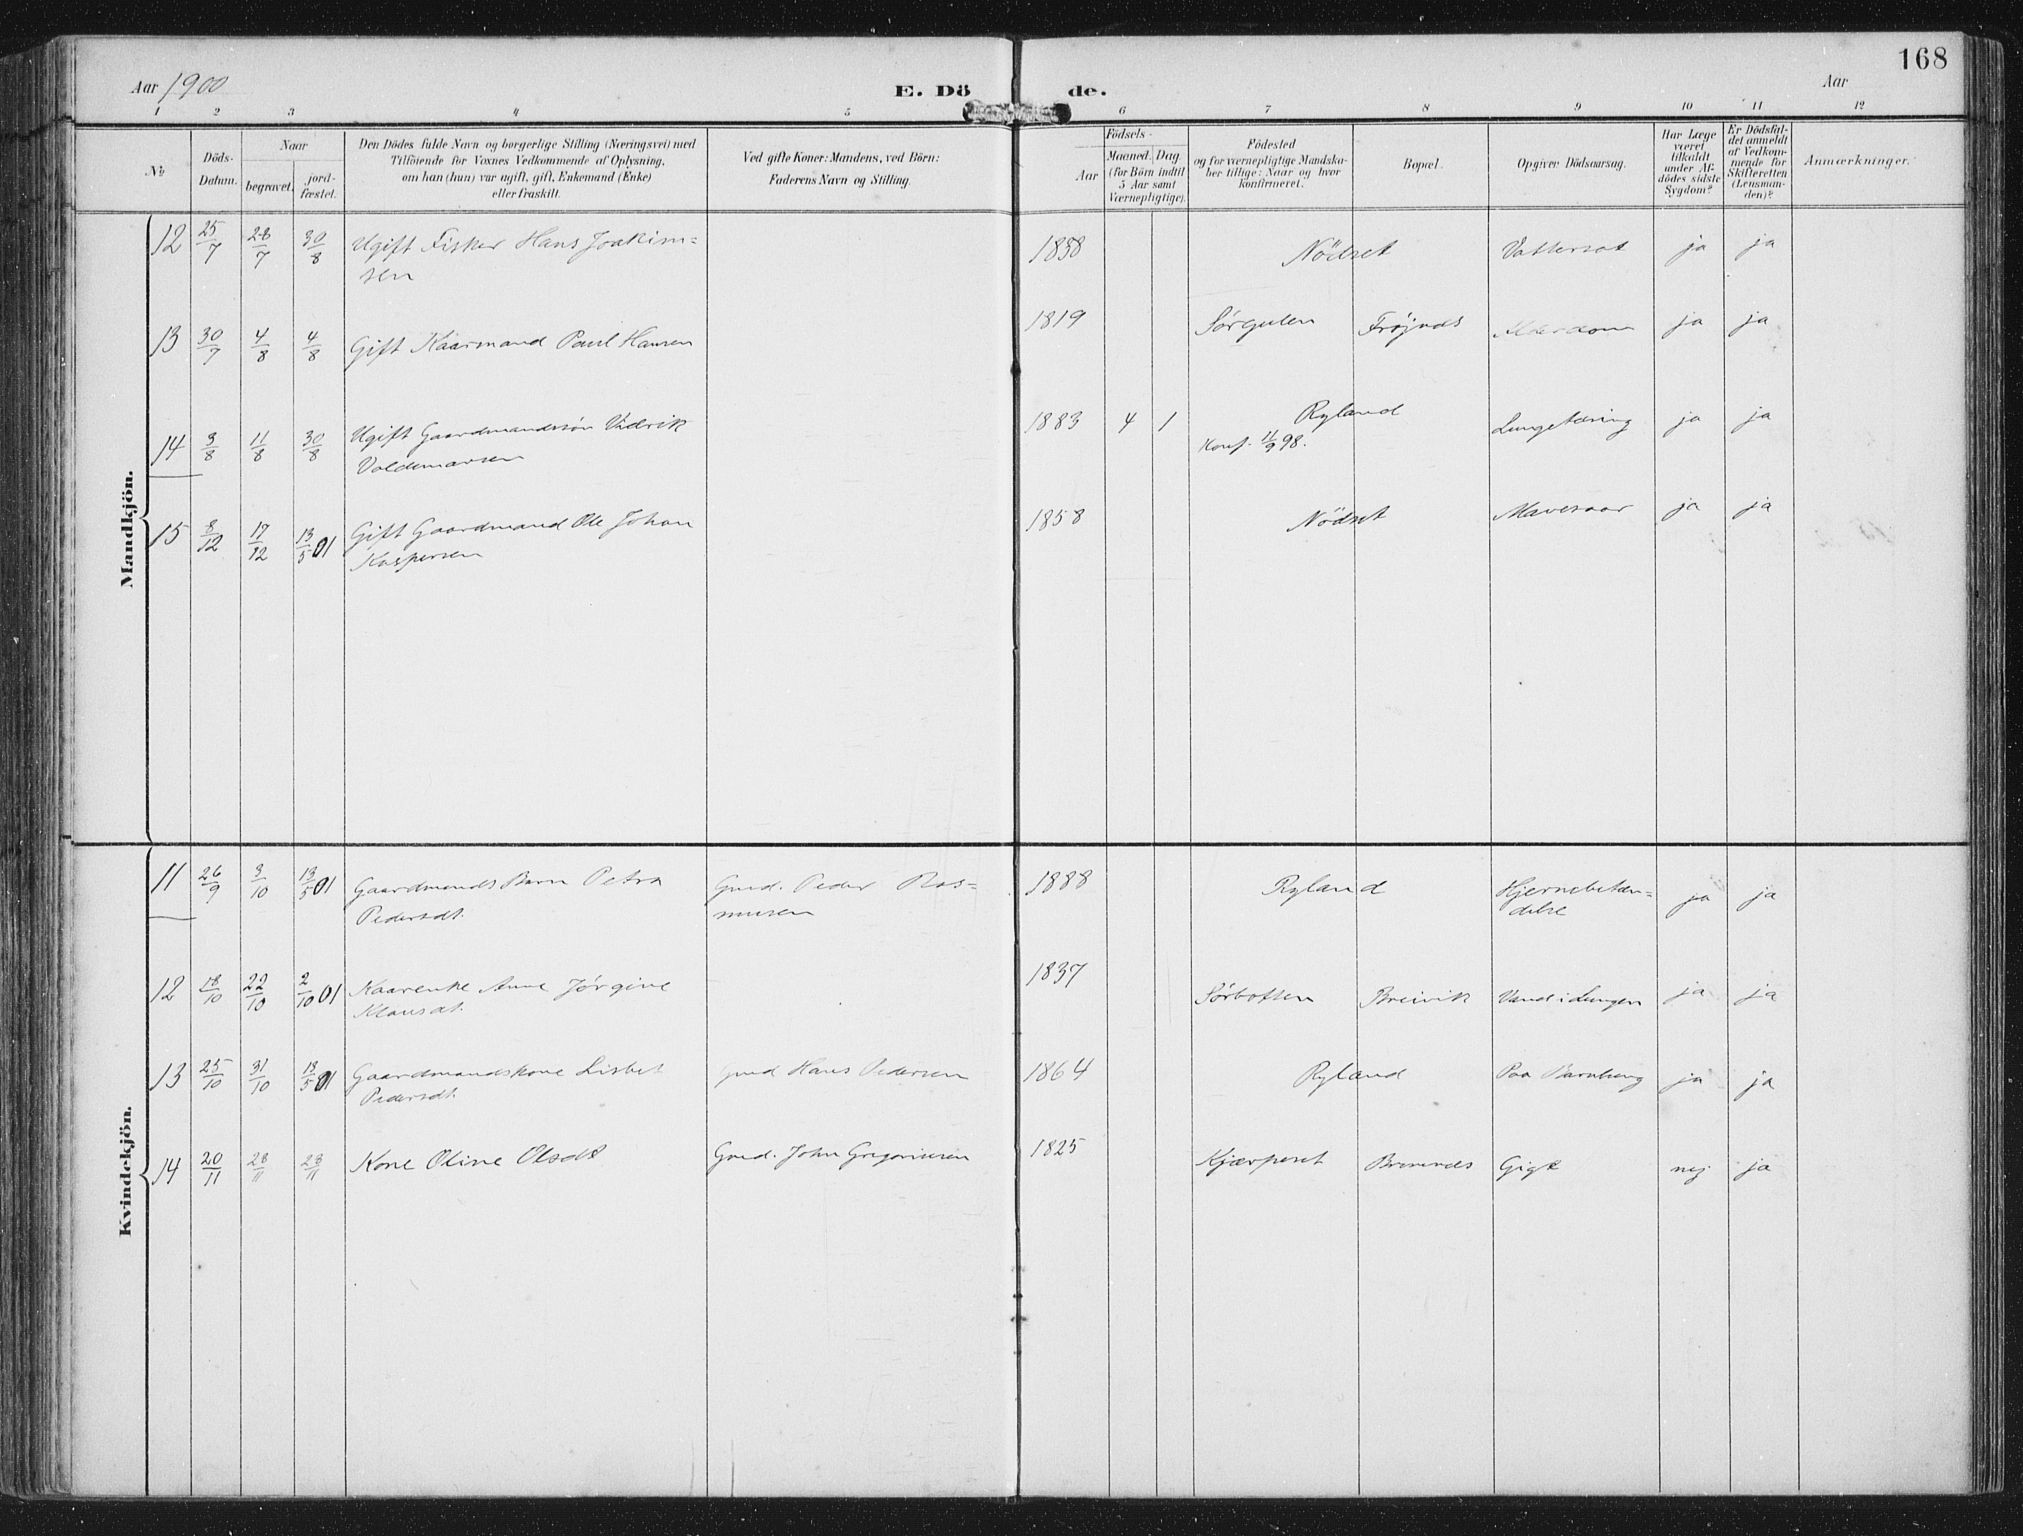 168
Aar 1900
E. Dö
de.
Aar
1 2 3 4 5 6 7 8 9 10 11 12
No
Döds-
Datum.
Naar
begravet.
jord-
fæstet.
Den Dödes fulde Navn og borgerlige Stilling (Næringsvei) med
Tilföiende for Voxnes Vedkommende af Oplysning,
om han (hun) var ugift, gift, Enkemand (Enke)
eller fraskilt.
Ved gifte Koner: Mandens, ved Börn:
Faderens Navn og Stilling.
Födsels-
Aar
Maaned. Dag
(for Börn indtil
5 Aar samt
Værnepligtige).
Födested
og for værnepligtige Mandska-
ber tillige: Naar og hvor
konfirmeret.
Bopæl.
Opgiven Dödsaarsag.
Har Læge
været
tilkaldt
under Af-
dödes sidste
Sygdom?
Er Dödsfal-
det anmeldt
af Vedkom-
mende for
Skifteretten
(Lensman-
den)?
Anmærkninger.
Mandkjön.
12 25/7 28/7 30/8 Ugift Fisker Hans Joakim-
sen
1838 Nödset Vattersot ja ja
13 30/7 4/8 4/8 Gift Kaarmand Paul Hansen
1819 Sørgulen Frøjnds Alderdom ja ja
14 3/8 11/8 30/8 Ugift Gaardmandssøn Vidrik
Valdemarsen
1883 4 1 Ryland Lungetæring ja ja
Konf. 11/9 98.
15 8/12 17/12 13/5 01 Gift Gaardmand Ole Johan
Kaspersen
1858 Nödset Mavesaar ja ja
Kvindekjön.
11 26/9 3/10 13/5 01 Gaardmands Barn Petra
Pedersdt.
Gmd. Peder Ras-
musen
1888 Ryland Hjernebetæn-
delse
ja ja
12 18/10 22/10 2/10 01 Kaarenke Anne Jørgine
Klausdt.
1837 Sørbotten Breivik Vand i Lungen ja ja
13 25/10 31/10 13/5 01 Gaardmandskone Lisbet
Pedersdt.
Gmd Hans Pedersen
1864 Ryland Paa Barnseng ja ja
14 20/11 28/11 28/11 Kone Oline Olsdt
Gmd. John Gregoriusen
1825 Kjærpeset Gigt nej ja